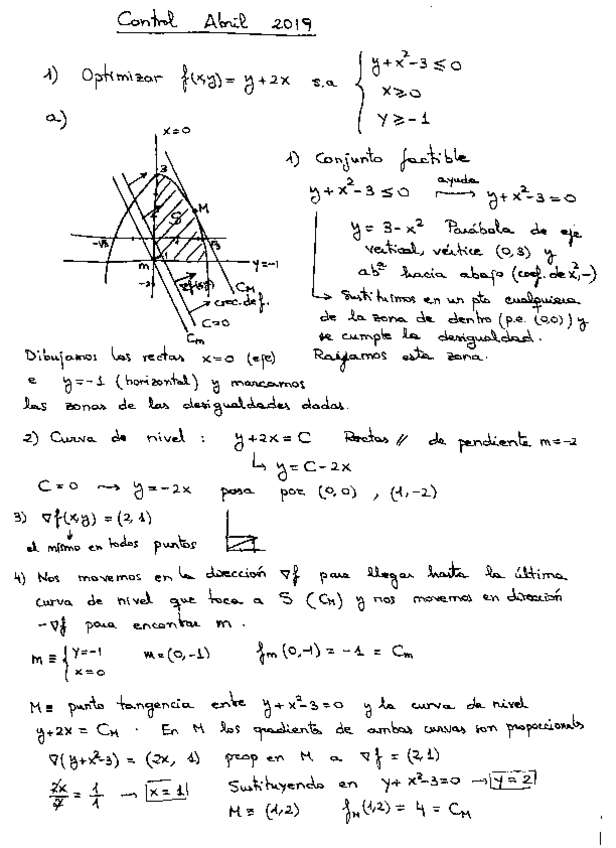 Control Abril 2019
1) Optimizar f(x,y) = y + 2x s.a { y + x² - 3 ≤ 0
x ≥ 0
y ≥ -1
a)
x=0
3
M
S
-√3
1
√3
y=-1
m
-1
-2
∇f(x,y)
C_M
crec. de f.
C=0
C_m
1) Conjunto factible
y + x² - 3 ≤ 0 ayuda → y + x² - 3 = 0
y = 3 - x² Parábola de eje
vertical, vértice (0,3) y
ab^a hacia abajo (coef. de x², -)
↳ Sustituimos en un pto cualquiera
de la zona de dentro (p.e. (0,0)) y
se cumple la desigualdad.
Rayamos esta zona.
Dibujamos las rectas x=0 (eje)
e y=-1 (horizontal) y marcamos
las zonas de las desigualdades dadas.
2) Curva de nivel : y + 2x = C Rectas // de pendiente m=-2
↳ y = C - 2x
C=0 → y = -2x pasa por (0,0) , (1,-2)
3) ∇f(x,y) = (2,1)
↓
el mismo en todos puntos
4) Nos movemos en la dirección ∇f para llegar hasta la última
curva de nivel que toca a S (C_M) y nos movemos en dirección
-∇f para encontrar m.
m ≡ { y=-1
x=0
m=(0,-1) f_m(0,-1) = -1 = C_m
M ≡ punto tangencia entre y + x² - 3 = 0 y la curva de nivel
y + 2x = C_M . En M los gradientes de ambas curvas son proporcionales
∇(y + x² - 3) = (2x, 1) prop en M a ∇f = (2,1)
2x/2 = 1/1 → x = 1 Sustituyendo en y + x² - 3 = 0 → y = 2
M ≡ (1,2) f_M(1,2) = 4 = C_M